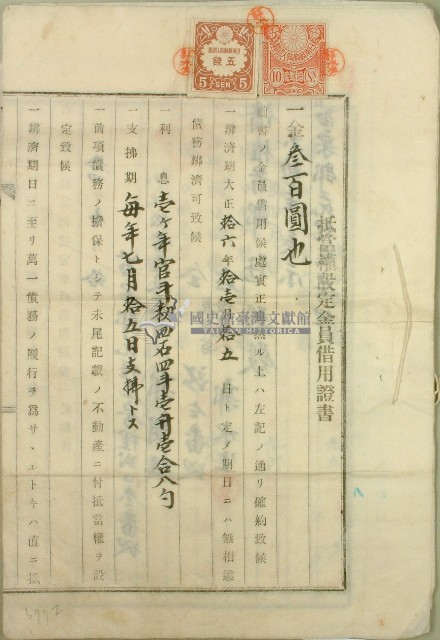 抵當權設定金員借用證書
一金叁百圓也
右書ノ金員借用候處實正也然ル上ハ左記ノ通リ確約致候
一辨濟期大正拾六年拾壱月拾五日ト定メ期日ニハ無相違
債務辨濟可致候
一利息壱ヶ年官斗穀四石四斗壱升壱合八勺
一支拂期每年七月拾五日支拂トス
一前項債務ノ擔保トシテ末尾記載ノ不動產ニ付抵當權ヲ設
定致候
一辨濟期日ニ至リ萬一債務ノ履行ヲ爲サヽルトキハ直ニ抵
五錢
5 SEN 5
10 SN.
國史館臺灣文獻館
TAIWAN HISTORICA